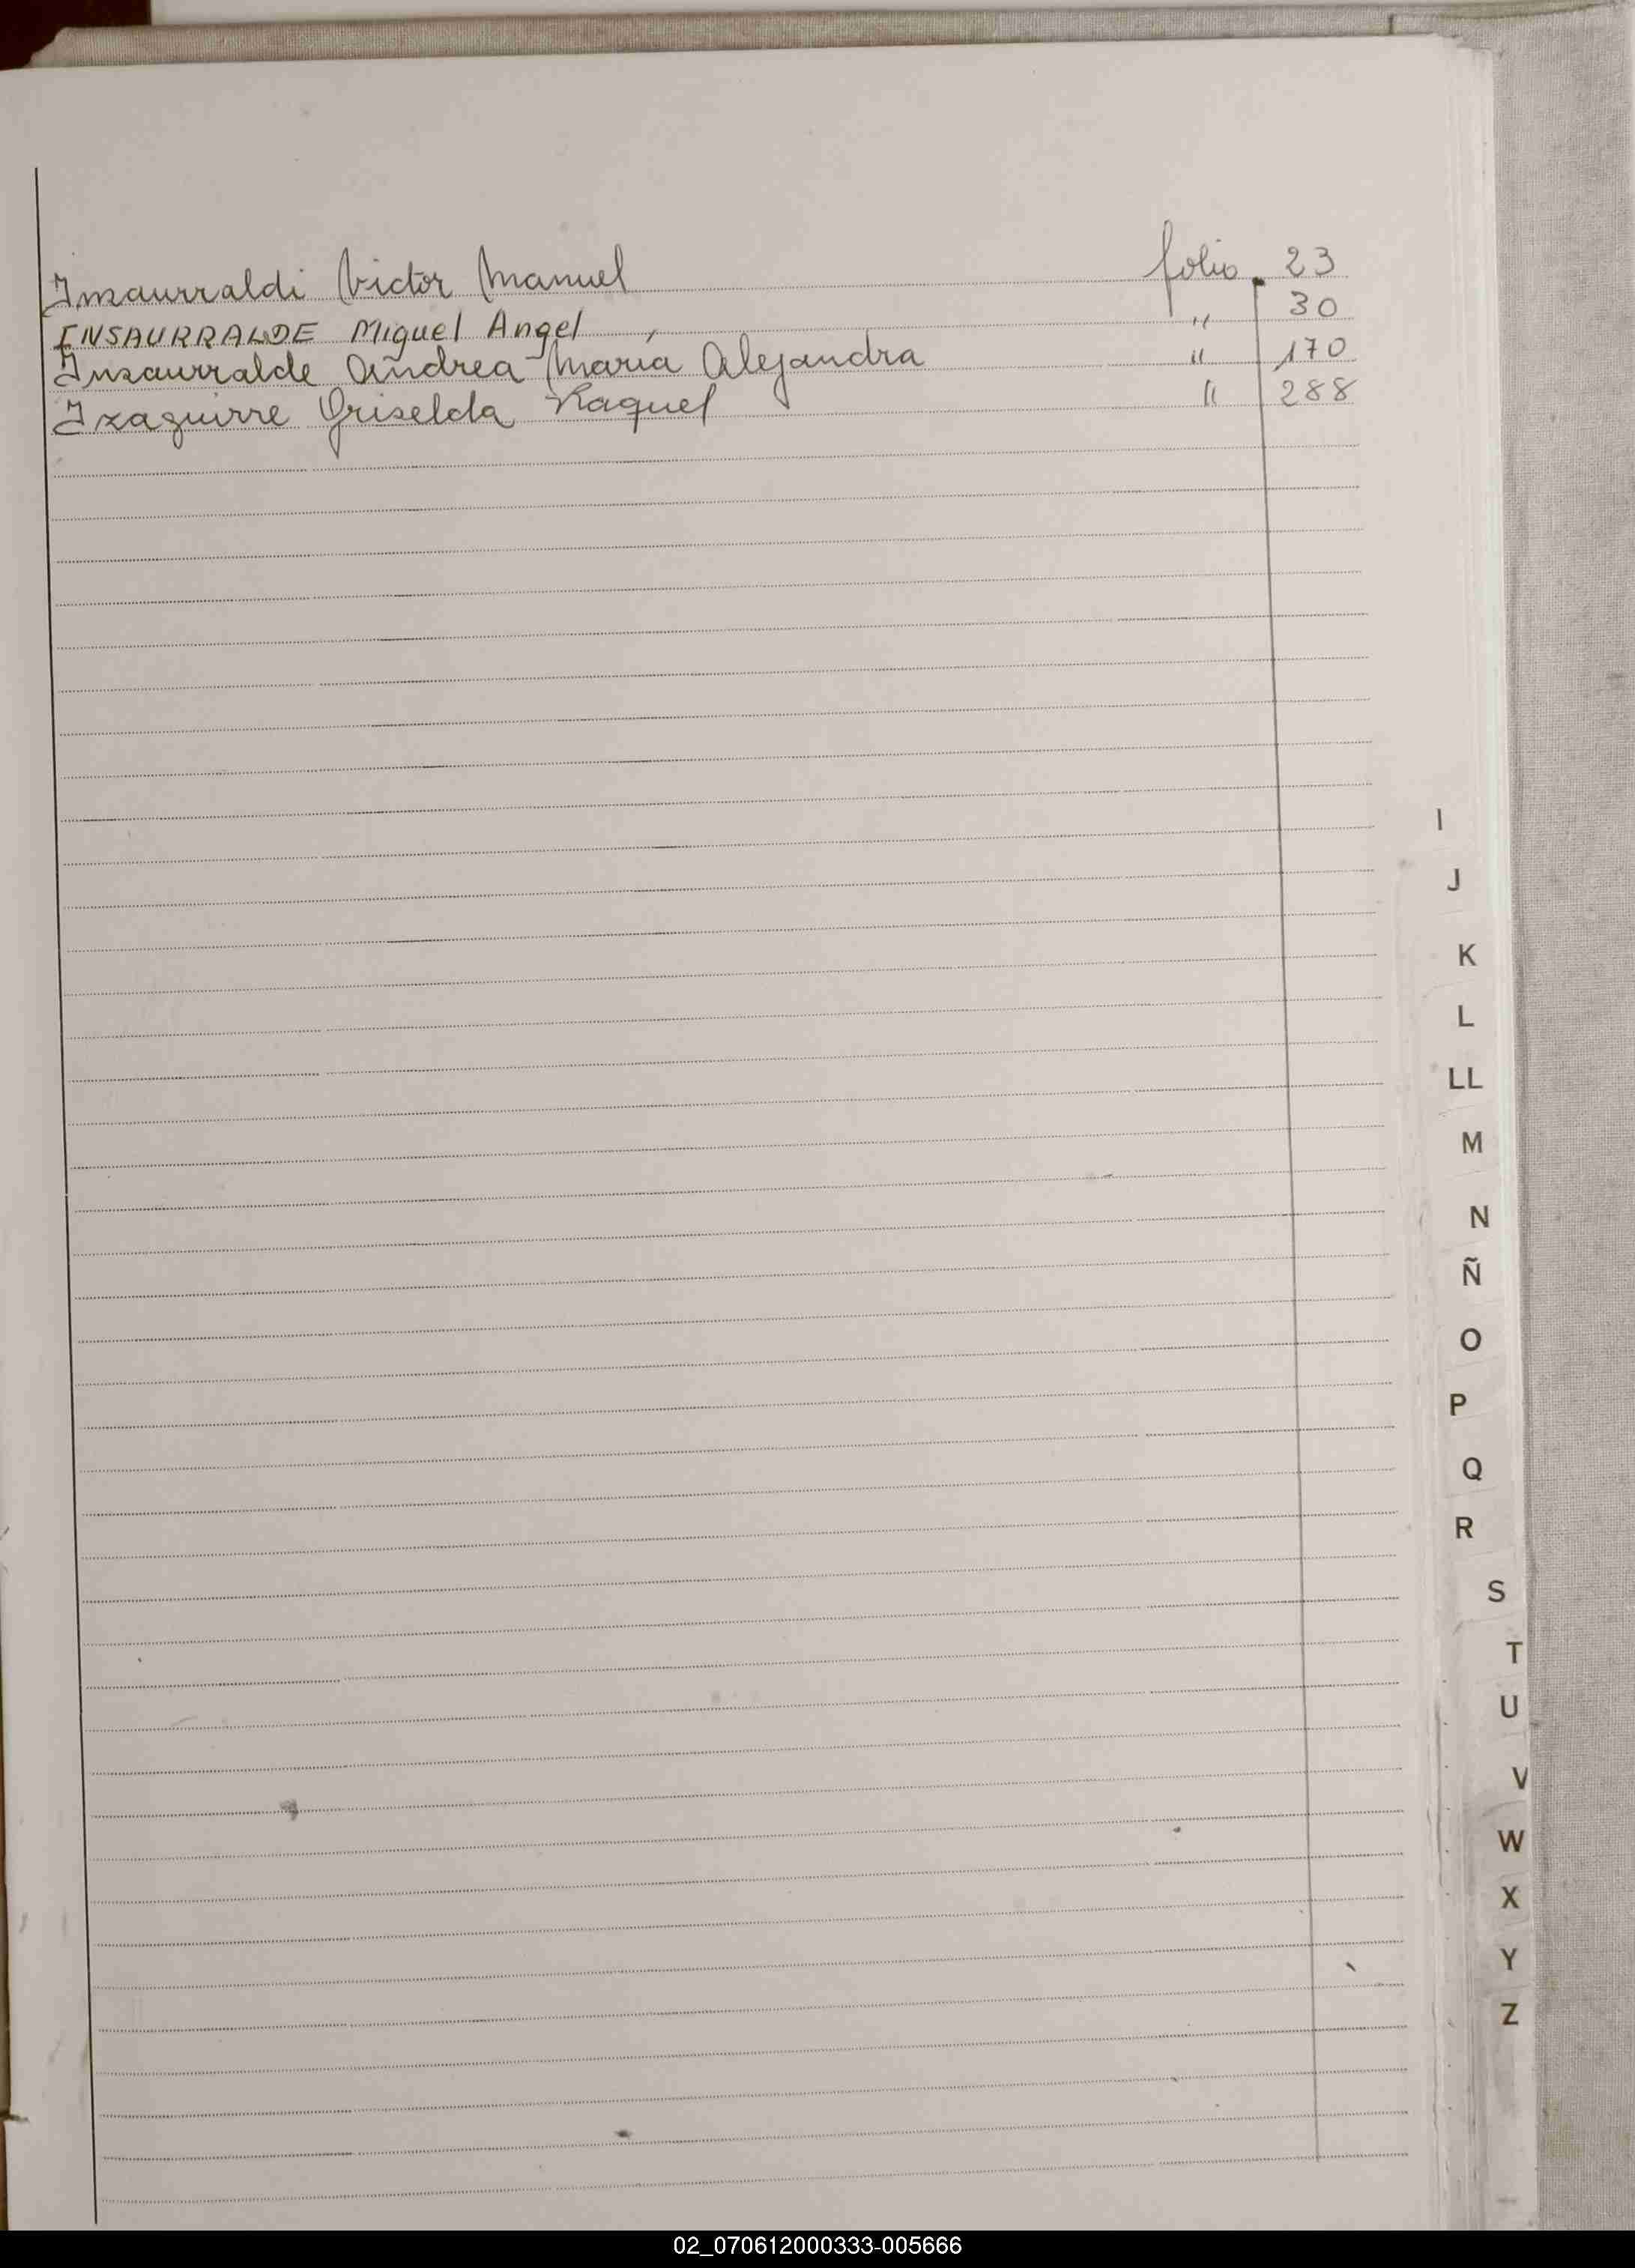 Inzaurraldi Victor Manuel folio 23
ENSAURRALDE Miguel Angel " 30
Inzaurralde Andrea Maria Alejandra " 170
Izaguirre Griselda Raquel " 288
I
J
K
L
LL
M
N
Ñ
O
P
Q
R
S
T
U
V
W
X
Y
Z
02_070612000333-005666